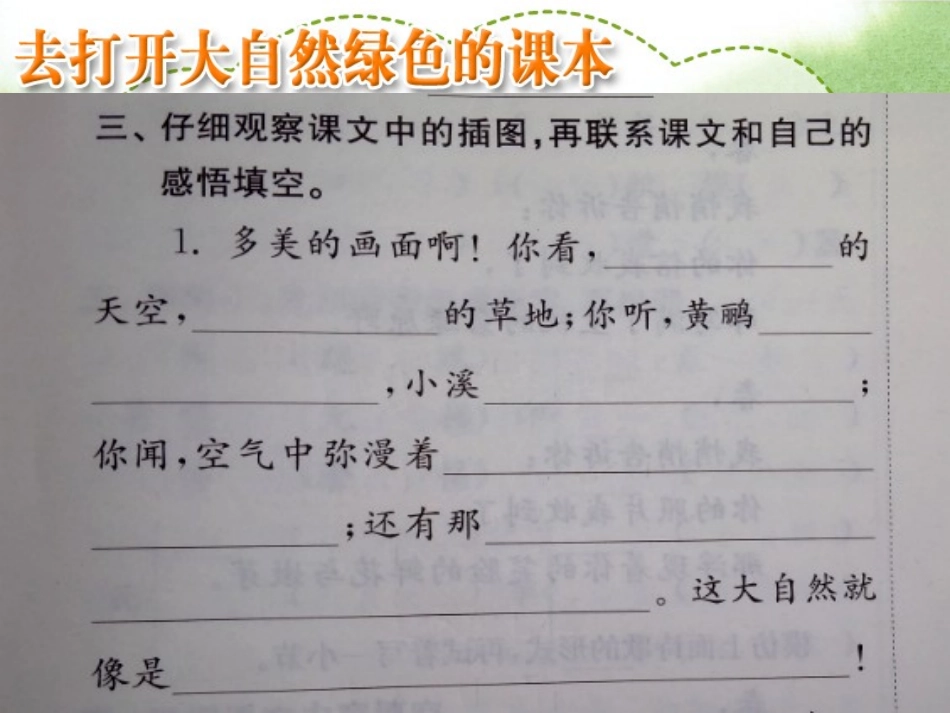 去打开大自然绿色的课本
三、仔细观察课文中的插图,再联系课文和自己的
感悟填空。
1. 多美的画面啊!你看,________的
天空,________的草地;你听,黄鹂____
________,小溪________;
你闻,空气中弥漫着________
________;还有那________
________。这大自然就
像是________!